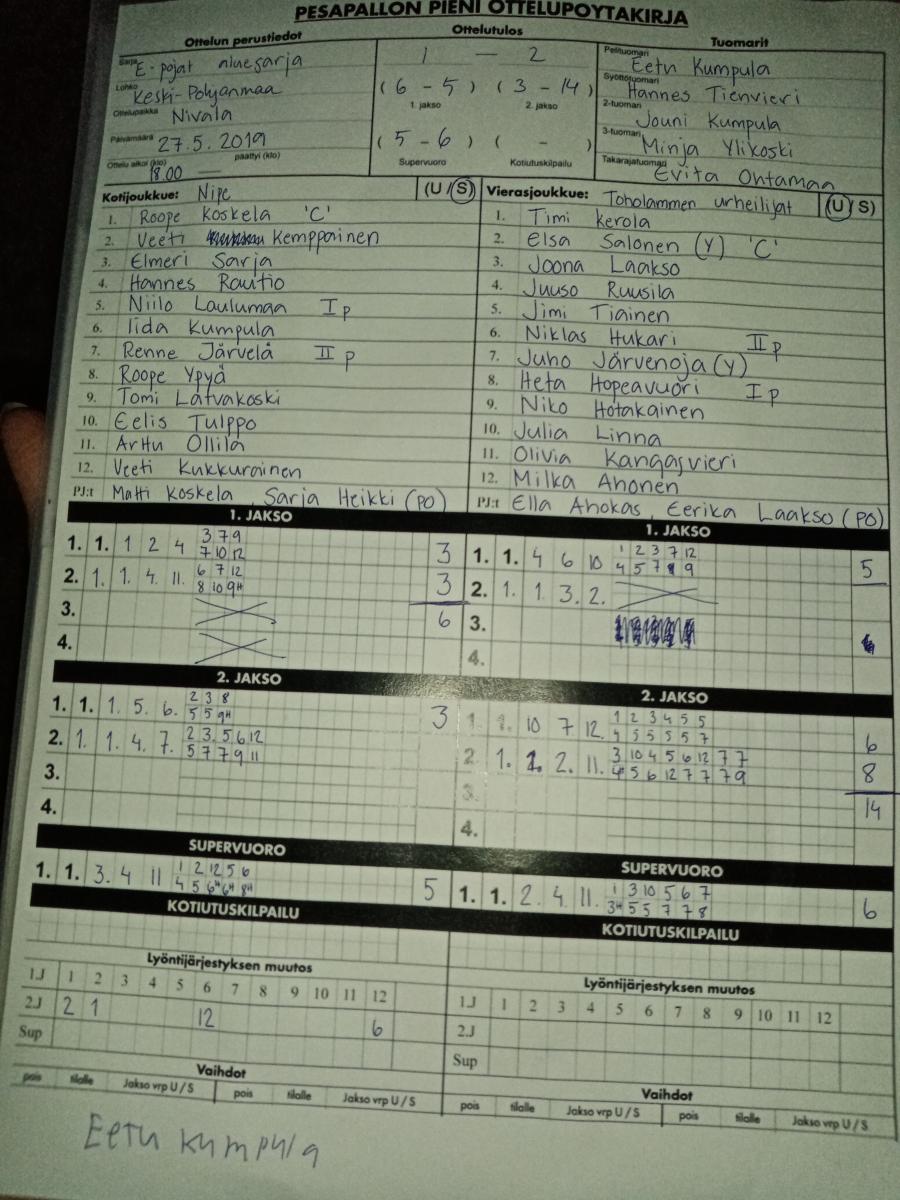 PESÄPALLON PIENI OTTELUPÖYTÄKIRJA
Ottelun perustiedot
Sarja E-pojat aluesarja
Lohko Keski-Pohjanmaa
Ottelupaikka Nivala
Päivämäärä 27.5.2019
Ottelu alkoi (klo) 18.00 — päättyi (klo)
Ottelutulos
1 — 2
(6 - 5) (3 - 14)
1. jakso 2. jakso
(5 - 6) ( - )
Supervuoro Kotiutuskilpailu
Tuomarit
Pelituomari Eetu Kumpula
Syöttötuomari Hannes Tienvieri
2-tuomari Jouni Kumpula
3-tuomari Minja Ylikoski
Takarajatuomari Evita Ontamaa
Kotijoukkue: Nipe (U/S)
1. Roope Koskela 'C'
2. Veeti Kemppainen
3. Elmeri Sarja
4. Hannes Rautio
5. Niilo Laulumaa I p
6. Iida Kumpula
7. Renne Järvelä II p
8. Roope Ypyä
9. Tomi Latvakoski
10. Eelis Tulppo
11. Arttu Ollila
12. Veeti Kukkurainen
PJ:t Matti Koskela, Sarja Heikki (PO)
Vierasjoukkue: Toholammen urheilijat (U/S)
1. Timi Kerola
2. Elsa Salonen (Y) 'C'
3. Joona Laakso
4. Juuso Ruusila
5. Jimi Tiainen
6. Niklas Hukari II p
7. Juho Järvenoja (Y)
8. Heta Hopeavuori I p
9. Niko Hotakainen
10. Julia Linna
11. Olivia Kangasvieri
12. Milka Ahonen
PJ:t Ella Ahokas, Eerika Laakso (PO)
1. JAKSO
1. 1. 1 2 4 3 7 9 3
7 10 12
2. 1. 1. 4. 11. 6 7 12 3
8 10 9H
3. 6
4.
1. JAKSO
1. 1. 4 6 10 1 2 3 7 12 5
4 5 7 8 9
2. 1. 1. 3. 2.
3.
4.
2. JAKSO
1. 1. 1. 5. 6. 2 3 8 3
5 5 9H
2. 1. 1. 4. 7. 2 3. 5 6 12
5 7 7 9 11
3.
4.
2. JAKSO
1. 1. 10 7 12. 1 2 3 4 5 5 6
4 5 5 5 5 7
2. 1. 1. 2. 11. 3 10 4 5 6 12 7 7 8
4H 5 6 12 7 7 7 9
3. 14
4.
SUPERVUORO
1. 1. 3. 4 11 1 2 12 5 6 5
4 5 6H 6H 8H
SUPERVUORO
1. 1. 2. 4. 11. 1 3 10 5 6 7 6
3H 5 5 7 7 8
KOTIUTUSKILPAILU
KOTIUTUSKILPAILU
Lyöntijärjestyksen muutos
1.J 1 2 3 4 5 6 7 8 9 10 11 12
2.J 2 1 12 6
Sup
Lyöntijärjestyksen muutos
1.J 1 2 3 4 5 6 7 8 9 10 11 12
2.J
Sup
Vaihdot
pois tilalle Jakso vrp U / S pois tilalle Jakso vrp U / S
Vaihdot
pois tilalle Jakso vrp U / S pois tilalle Jakso vrp U / S
Eetu Kumpula